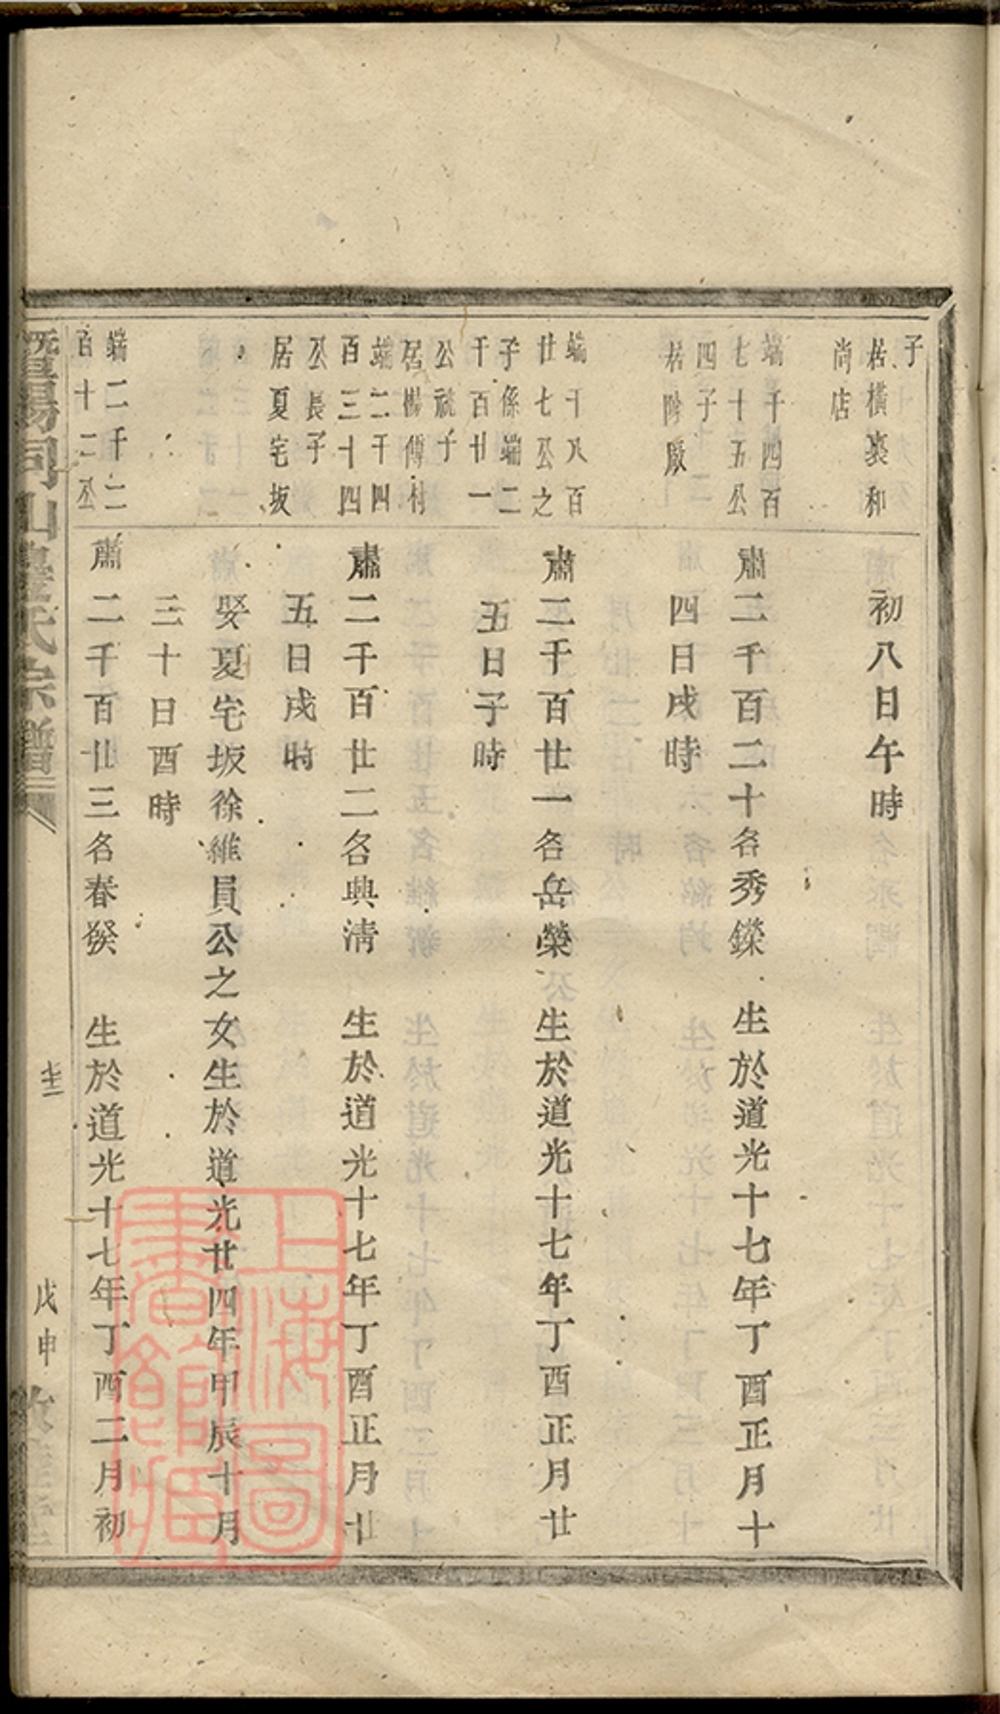 子
居橫裘和
尚店
初八日午時
端千四百
七十五公
四子
居階廠
肅二千百二十名秀鑅 生於道光十七年丁酉正月十
四日戌時
端千八百
廿七公之
子係端二
千百廿一
公祧子
居楊傅村
肅二千百廿一名岳榮 生於道光十七年丁酉正月廿
五日子時
端二千四
百三十四
公長子
居夏宅坂
肅二千百廿二名興清 生於道光十七年丁酉正月廿
五日戌時
娶夏宅坂徐維員公之女生於道光廿四年甲辰十月
三十日酉時
端二千二
百十二公
肅二千百廿三名春猴 生於道光十七年丁酉二月初
暨陽同山邊氏宗譜
戊申
上海圖書館藏